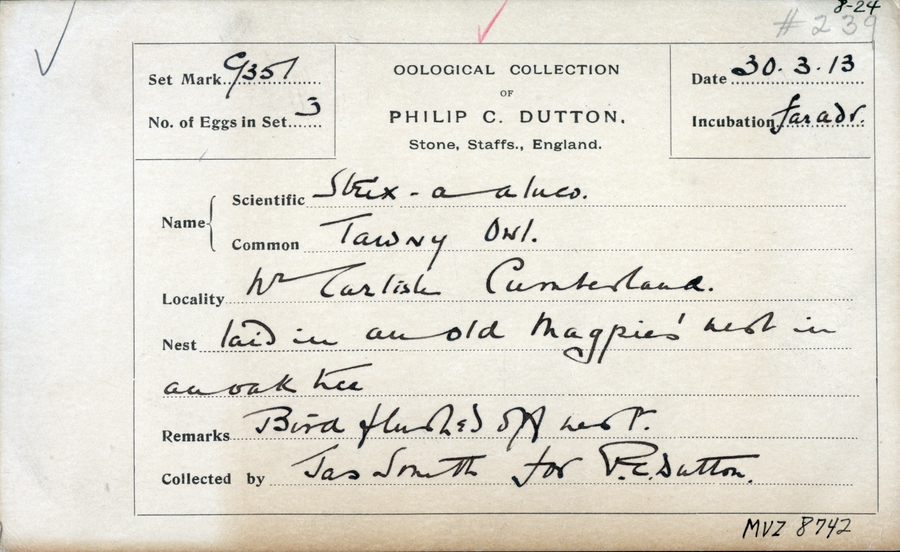 8-24
#239
Set Mark G/351
No. of Eggs in Set 3
OOLOGICAL COLLECTION
OF
PHILIP C. DUTTON,
Stone, Staffs., England.
Date 30.3.13
Incubation far adv.
Name
Scientific Strix - a aluco.
Common Tawny Owl.
Locality Nr Carlisle Cumberland.
Nest laid in an old Magpies' nest in
an oak tree
Remarks Bird flushed off nest.
Collected by Jas Smith for P.C. Dutton.
MVZ 8742